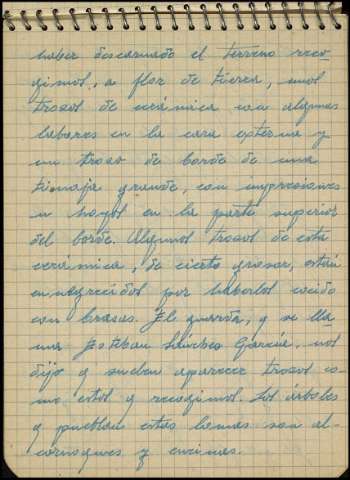 haber descarnado el terreno reco-
gimos, a flor de tierra, unos
trozos de cerámica con algunas
labores en la cara externa y
un trozo de borde de una
tinaja grande, con impresiones
en la parte superior
del borde. Algunos trozos de esta
cerámica, de cierto grosor, están
ennegrecidos por haberlos cocido
con brasas. El guarda, q se lla-
ma Esteban Sánchez García, nos
dijo q suelen aparecer trozos co-
mo estos q recogimos. Los árboles
q pueblan estas lomas son al-
cornoques y encinas.